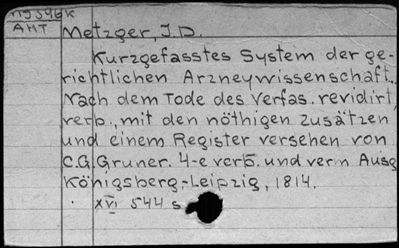 M5396k
AHT
Metzger, J.D.
Kurzgefasstes System der ge-
richtlichen Arzneywissenschaft..
Nach dem Tode des Verfas. revidirt,
verb., mit den nöthigen Zusätzen
und einem Register versehen von
C.G.Gruner. 4-e verb. und verm Ausg
Königsberg-Leipzig, 1814.
XVI 544 s.